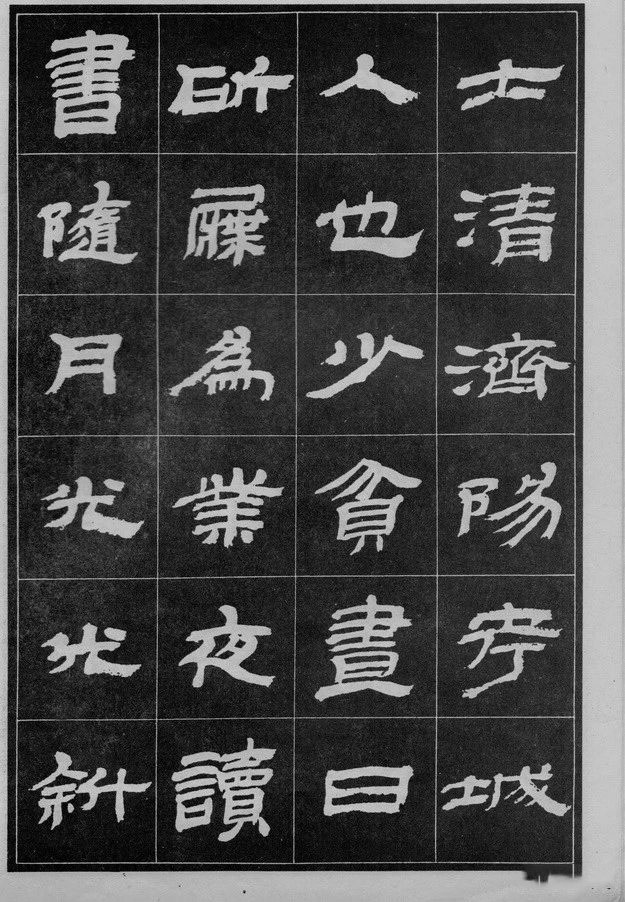 士清濟陽考城
人也少貧晝日
斫屧為業夜讀
書隨月光光斜